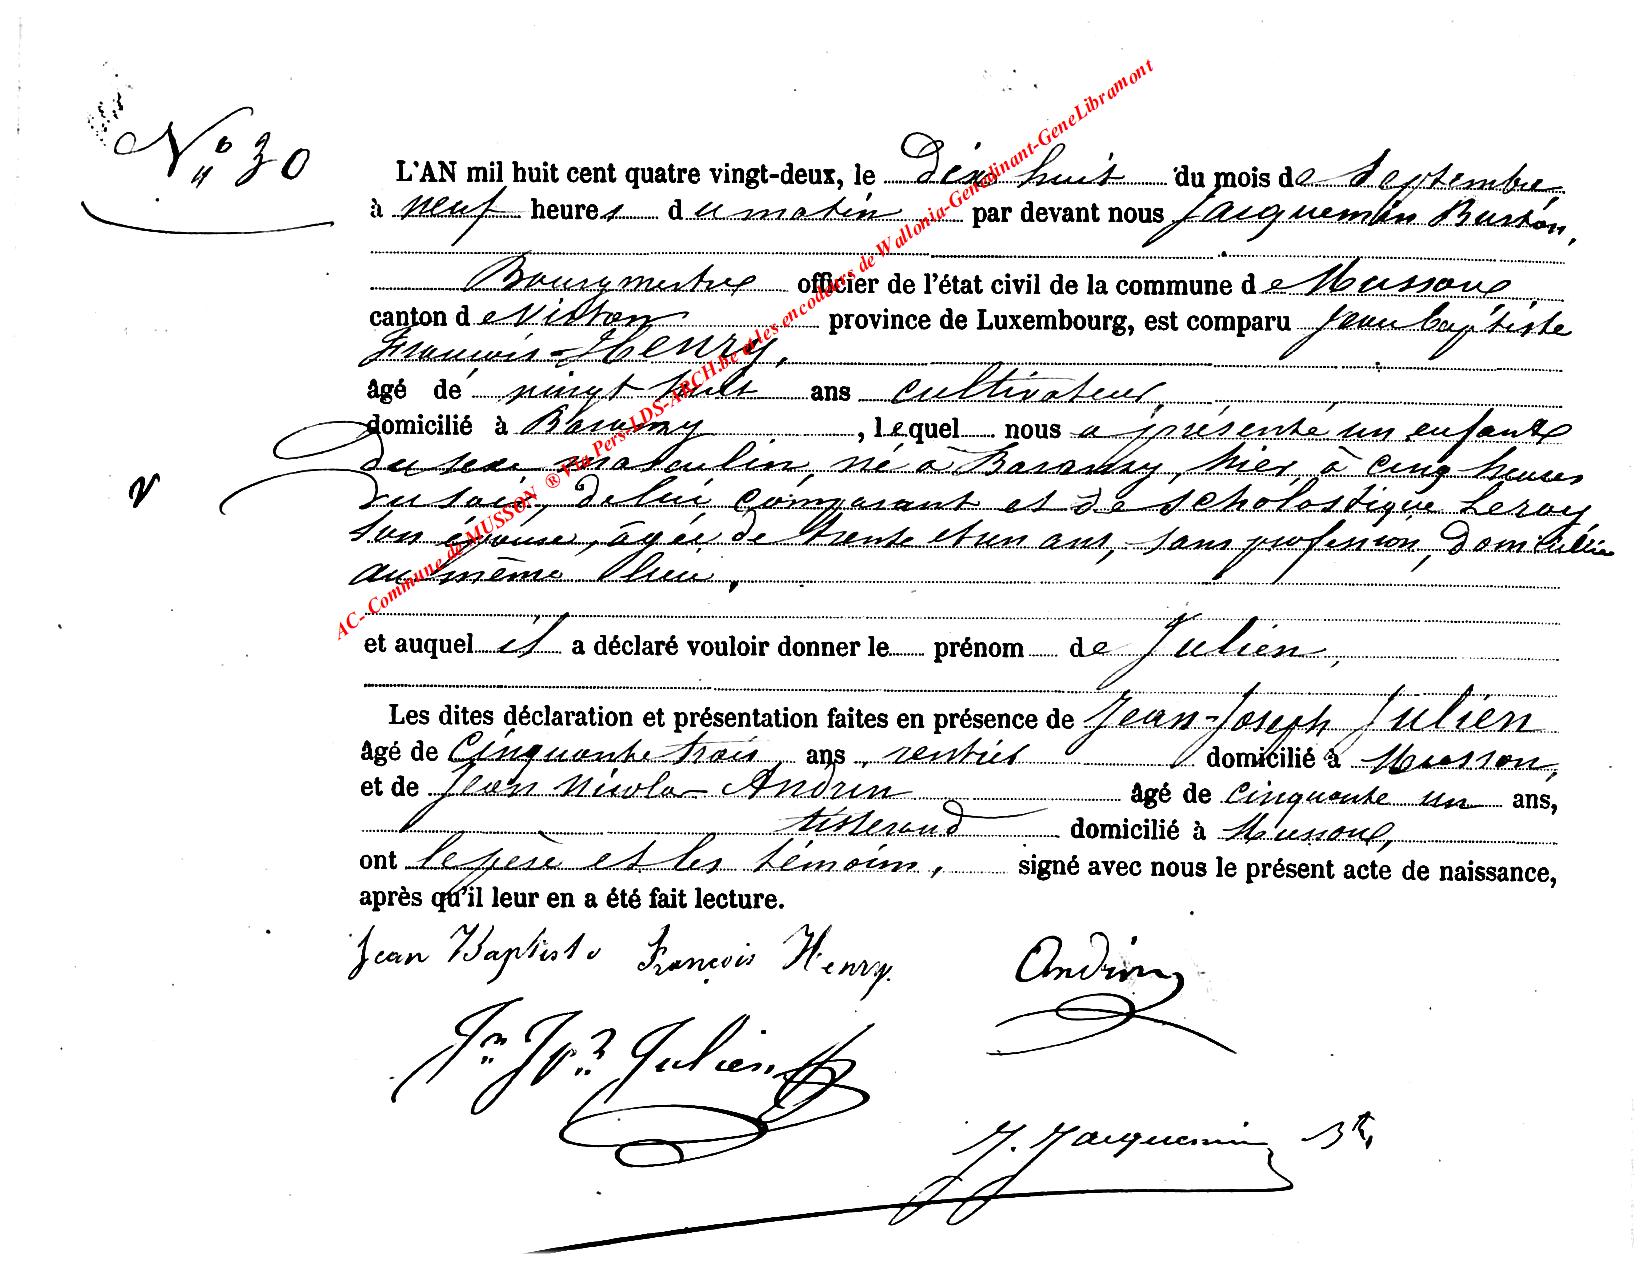 N° 30
L'AN mil huit cent quatre vingt-deux, le Dix huit du mois de Septembre,
à neuf heures du matin par devant nous Jacquemin Burton,
Bourgmestre officier de l'état civil de la commune de Musson,
canton de Virton province de Luxembourg, est comparu Jean Baptiste
François-Henry,
âgé de vingt huit ans cultivateur,
domicilié à Baranzy, lequel nous a présenté un enfant
du sexe masculin, né à Baranzy, hier, à cinq heures
du soir, de lui comparant et de Scholastique Leroy
son épouse, âgée de trente et un ans, sans profession, domiciliée
au même lieu.
et auquel il a déclaré vouloir donner le prénom de Julien,
Les dites déclaration et présentation faites en présence de Jean-Joseph Julien
âgé de cinquante trois ans, rentier domicilié à Musson,
et de Jean Nicolas Andrin âgé de cinquante un ans,
tisserand domicilié à Musson,
ont le père et les témoins, signé avec nous le présent acte de naissance,
après qu'il leur en a été fait lecture.
Jean Baptiste François Henry. Andrin
Jn Jph Julien
J. Jacquemin Bn
AC- Commune de MUSSON ® Via Pers-LDS-ARCH.be et les encodeurs de Wallonia-Genedinant-GeneLibramont